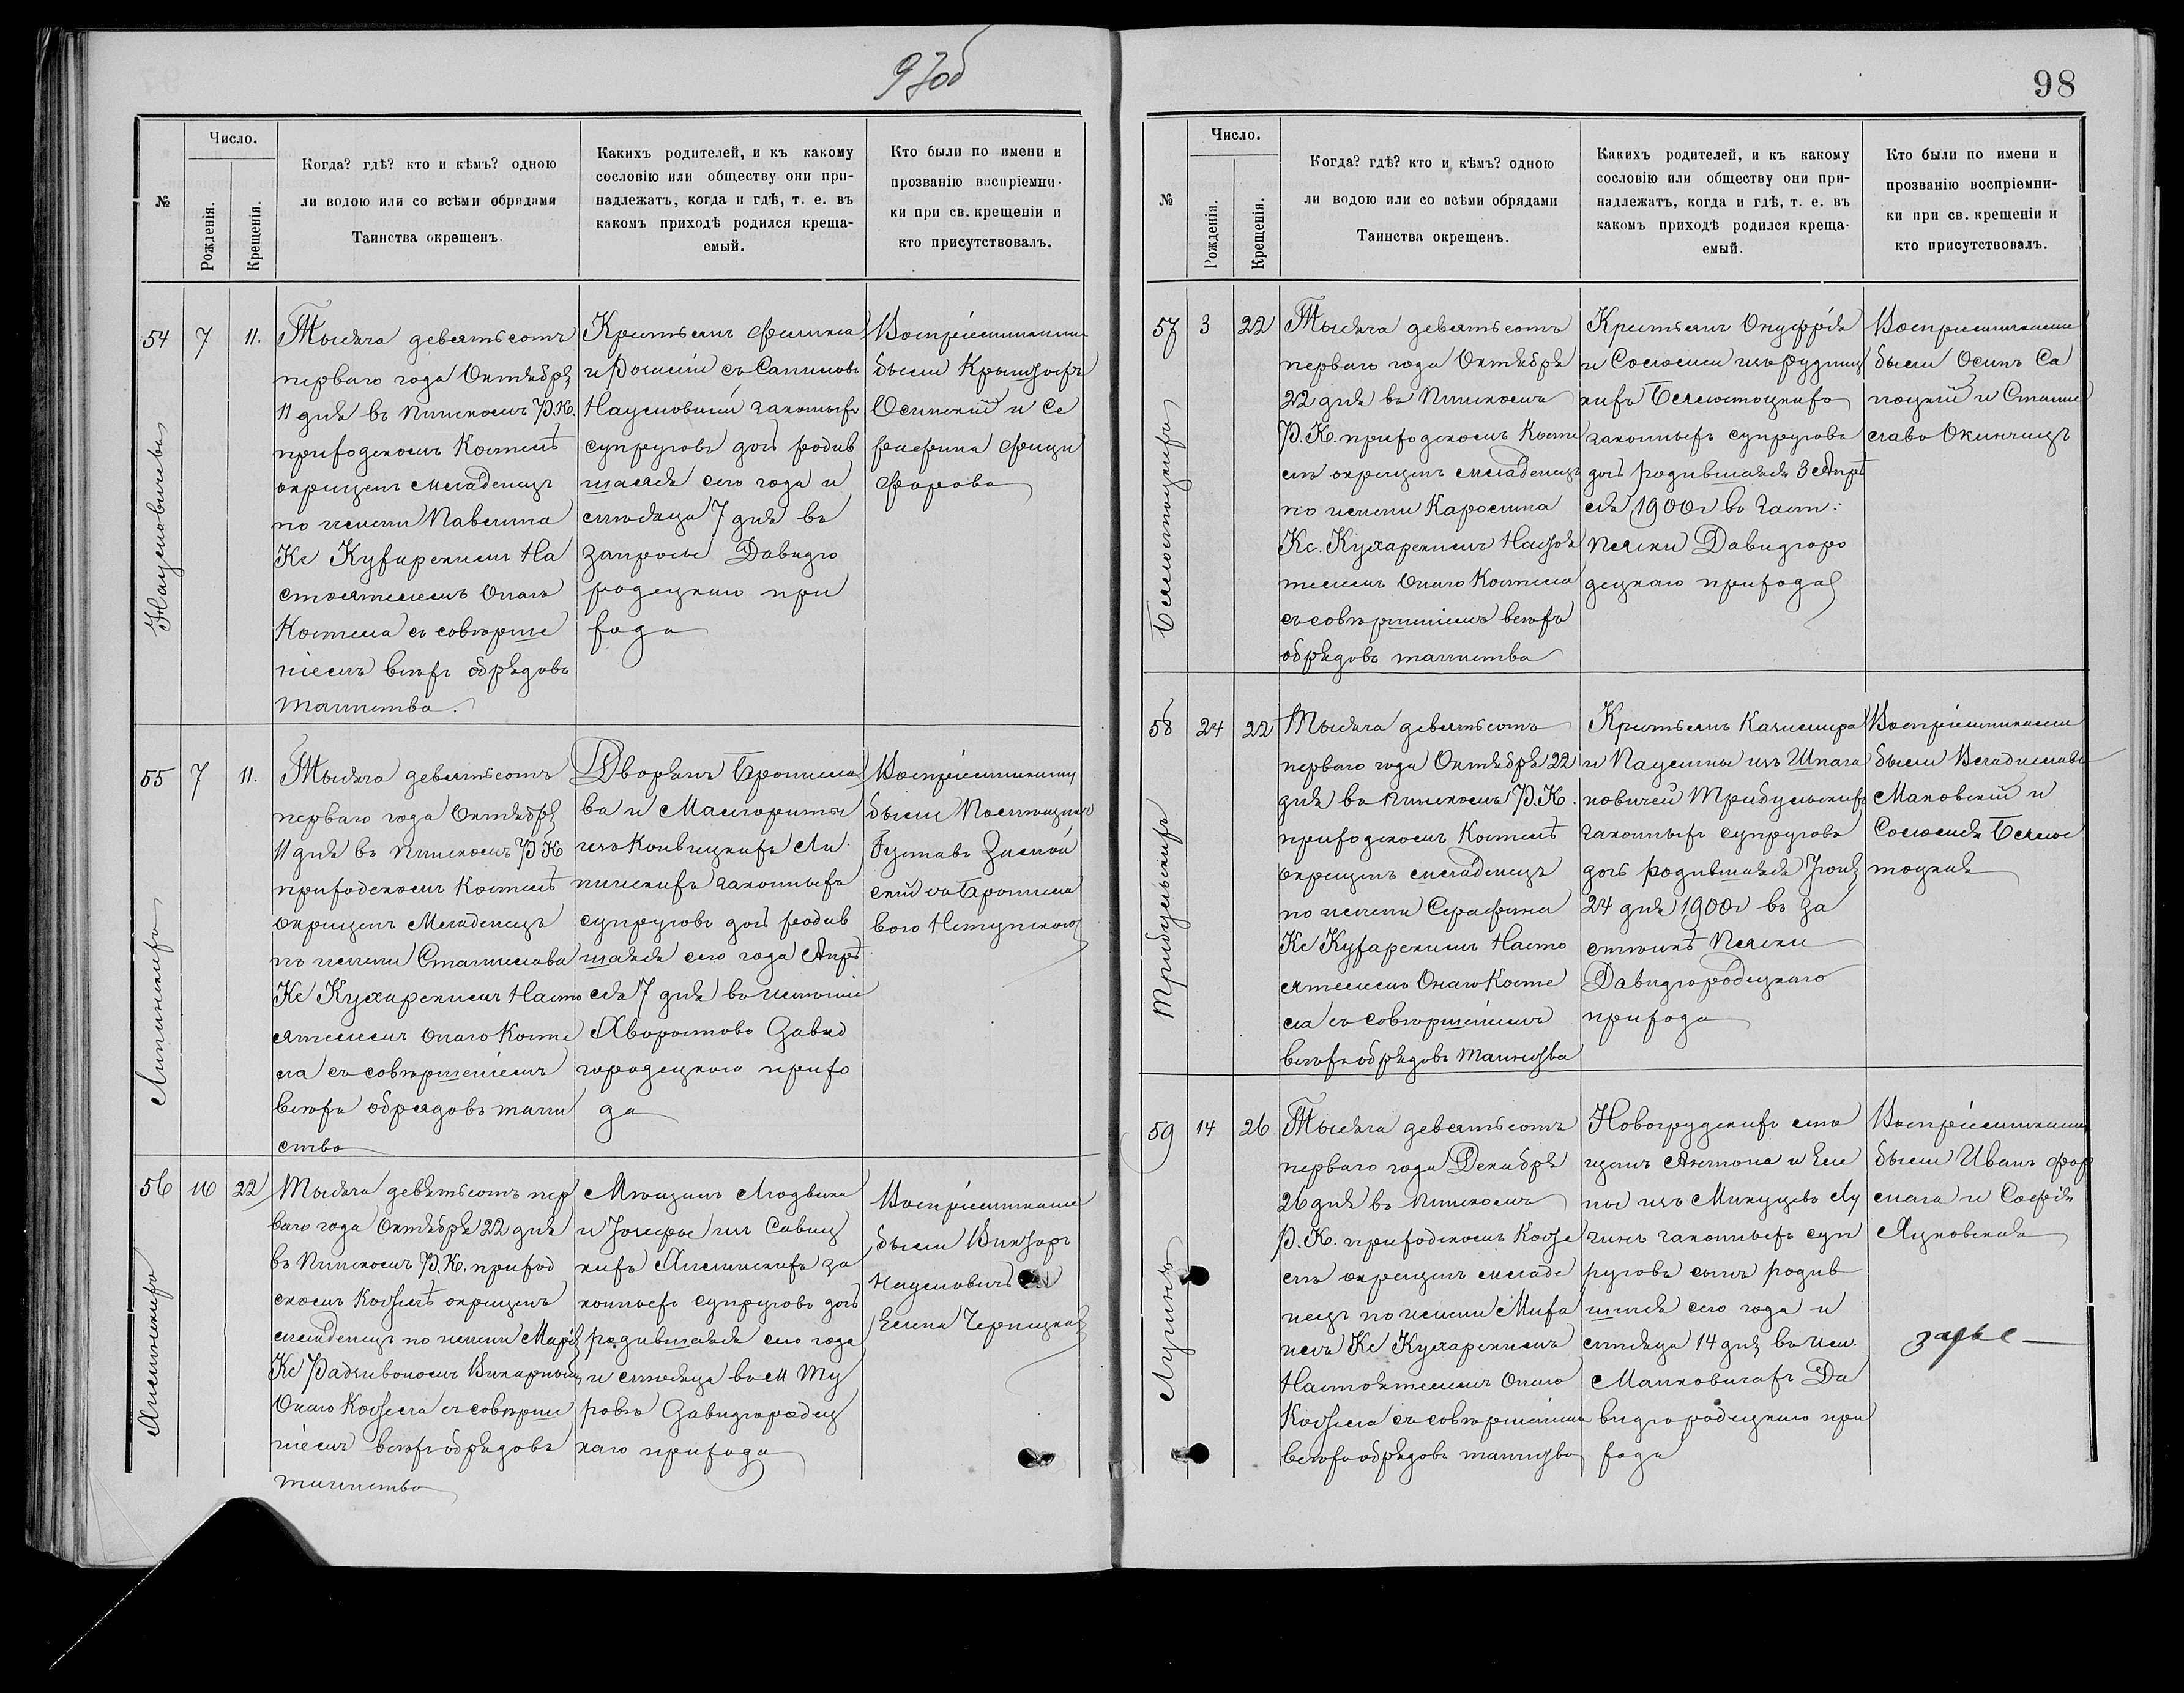 97об
98
№
Число.
Рожденія.
Крещенія.
Когда? гдѣ? кто и кѣмъ? одною
ли водою или со всѣми обрядами
Таинства окрещенъ.
Какихъ родителей, и къ какому
сословію или обществу они при-
надлежатъ, когда и гдѣ, т. е. въ
какомъ приходѣ родился креща-
емый.
Кто были по имени и
прозванію воспріемни-
ки при св. крещеніи и
кто присутствовалъ.
54
7
11.
Наумовичъ
Тысяча девятьсотъ
перваго года Октября
11 дня въ Пинскомъ Р.К.
приходскомъ Костелѣ
окрещенъ младенецъ
по имени Павлина
Кс Кухарскимъ На
стоятелемъ онаго
Костела с соверше
ніемъ всѣхъ обрядовъ
таинства.
Крестьянъ Феликса
и Розаліи съ
Наумовичей законныхъ
супруговъ дочь родив
шаяся сего года и
мѣсяца 7 дня въ
Давидго
родецкаго при
хода
Воспріемниками
были Крыштофъ
Осинскій и Се
рафина
55
7
11.
Липинскихъ
Тысяча девятьсотъ
перваго года Октября
11 дня въ Пинскомъ Р К
приходскомъ Костелѣ
окрещенъ Младенецъ
по имени Станислава
Кс Кухарскимъ Насто
ятелемъ онаго Косте
ла съ совершеніемъ
всѣхъ обрядовъ таин
ства
Дворянъ Бронисла
ва и Малгориты
изъ Конвицкихъ Ли
пинскихъ законныхъ
супруговъ дочь родив
шаяся сего года Апрѣ
ля 7 дня въ имѣніи
Хворостово Давид
городецкаго прихо
да
Воспріемниками
были
Густавъ
скій съ Бронисла
вою
56
10
22
Хмѣлинскихъ
Тысяча девятьсотъ пер
ваго года Октября 22 дня
въ Пинскомъ Р.К. приход
скомъ Костелѣ окрещенъ
младенецъ по имени Марія
Кс Радзивономъ Викарнымъ
Онаго Костела с соверше
ніемъ всѣхъ обрядовъ
таинства
Мѣщанъ Людвика
и Юзефы изъ Савиц
кихъ за
конныхъ супруговъ дочь
родившаяся сего года
и мѣсяца въ М Ту
ровѣ Давидгородец
каго прихода
Воспріемниками
были Викторъ
Наумовичъ
Елена Черницкая
№
Число.
Рожденія.
Крещенія.
Когда? гдѣ? кто и кѣмъ? одною
ли водою или со всѣми обрядами
Таинства окрещенъ.
Какихъ родителей, и къ какому
сословію или обществу они при-
надлежатъ, когда и гдѣ, т. е. въ
какомъ приходѣ родился креща-
емый.
Кто были по имени и
прозванію воспріемни-
ки при св. крещеніи и
кто присутствовалъ.
57
3
22
Бялостоцкихъ
Тысяча девятьсотъ
перваго года Октября
22 дня въ Пинскомъ
Р.К. приходскомъ Косте
лѣ окрещенъ младенецъ
по имени Каролина
Кс. Кухарскимъ Настоя
телемъ Онаго Костела
съ совершеніемъ всѣхъ
обрядовъ таинства
Крестьянъ Онуфрія
и Соломеи изъ Рудниц
кихъ Бялостоцкихъ
законныхъ супруговъ
дочь родившаяся 3 Апрѣ
ля 1900г въ
Пяски Давидгоро
децкаго прихода
Воспріемниками
были Осипъ Са
поцкій и Стани
слава Окинчицъ
58
24
22
Трибульскихъ
Тысяча девятьсотъ
перваго года Октября 22
дня въ Пинскомъ Р.К.
приходскомъ Костелѣ
окрещенъ младенецъ
по имени Серафина
Кс Кухарскимъ Насто
ятелемъ Онаго Косте
ла съ совершеніемъ
всѣхъ обрядовъ таинства
Крестьянъ Казимира
и Паулины изъ Шпага
новичей Трибульскихъ
законныхъ супруговъ
дочь родившаяся Іюня
24 дня 1900г въ за
стѣнкѣ Пяски
Давидгородецкаго
прихода
Воспріемниками
были Владиславъ
Маковскій и
Соломея Бялос
тоцкая
59
14
26
Лучинъ
Тысяча девятьсотъ
перваго года Декабря
26 дня въ Пинскомъ
Р.К. приходскомъ Косте
лѣ окрещенъ младе
нецъ по имени Миха
илъ Кс Кухарскимъ
Настоятелемъ Онаго
Костела съ совершеніемъ
всѣхъ обрядовъ таинства
Новогрудскихъ мѣ
щанъ Антона и Еле
ны изъ Лу
чинъ законныхъ суп
руговъ сынъ родив
шійся сего года и
мѣсяца 14 дня въ им.
Малковичахъ Да
видгородецкаго при
хода
Воспріемниками
были Иванъ
и Софія
Яцковская